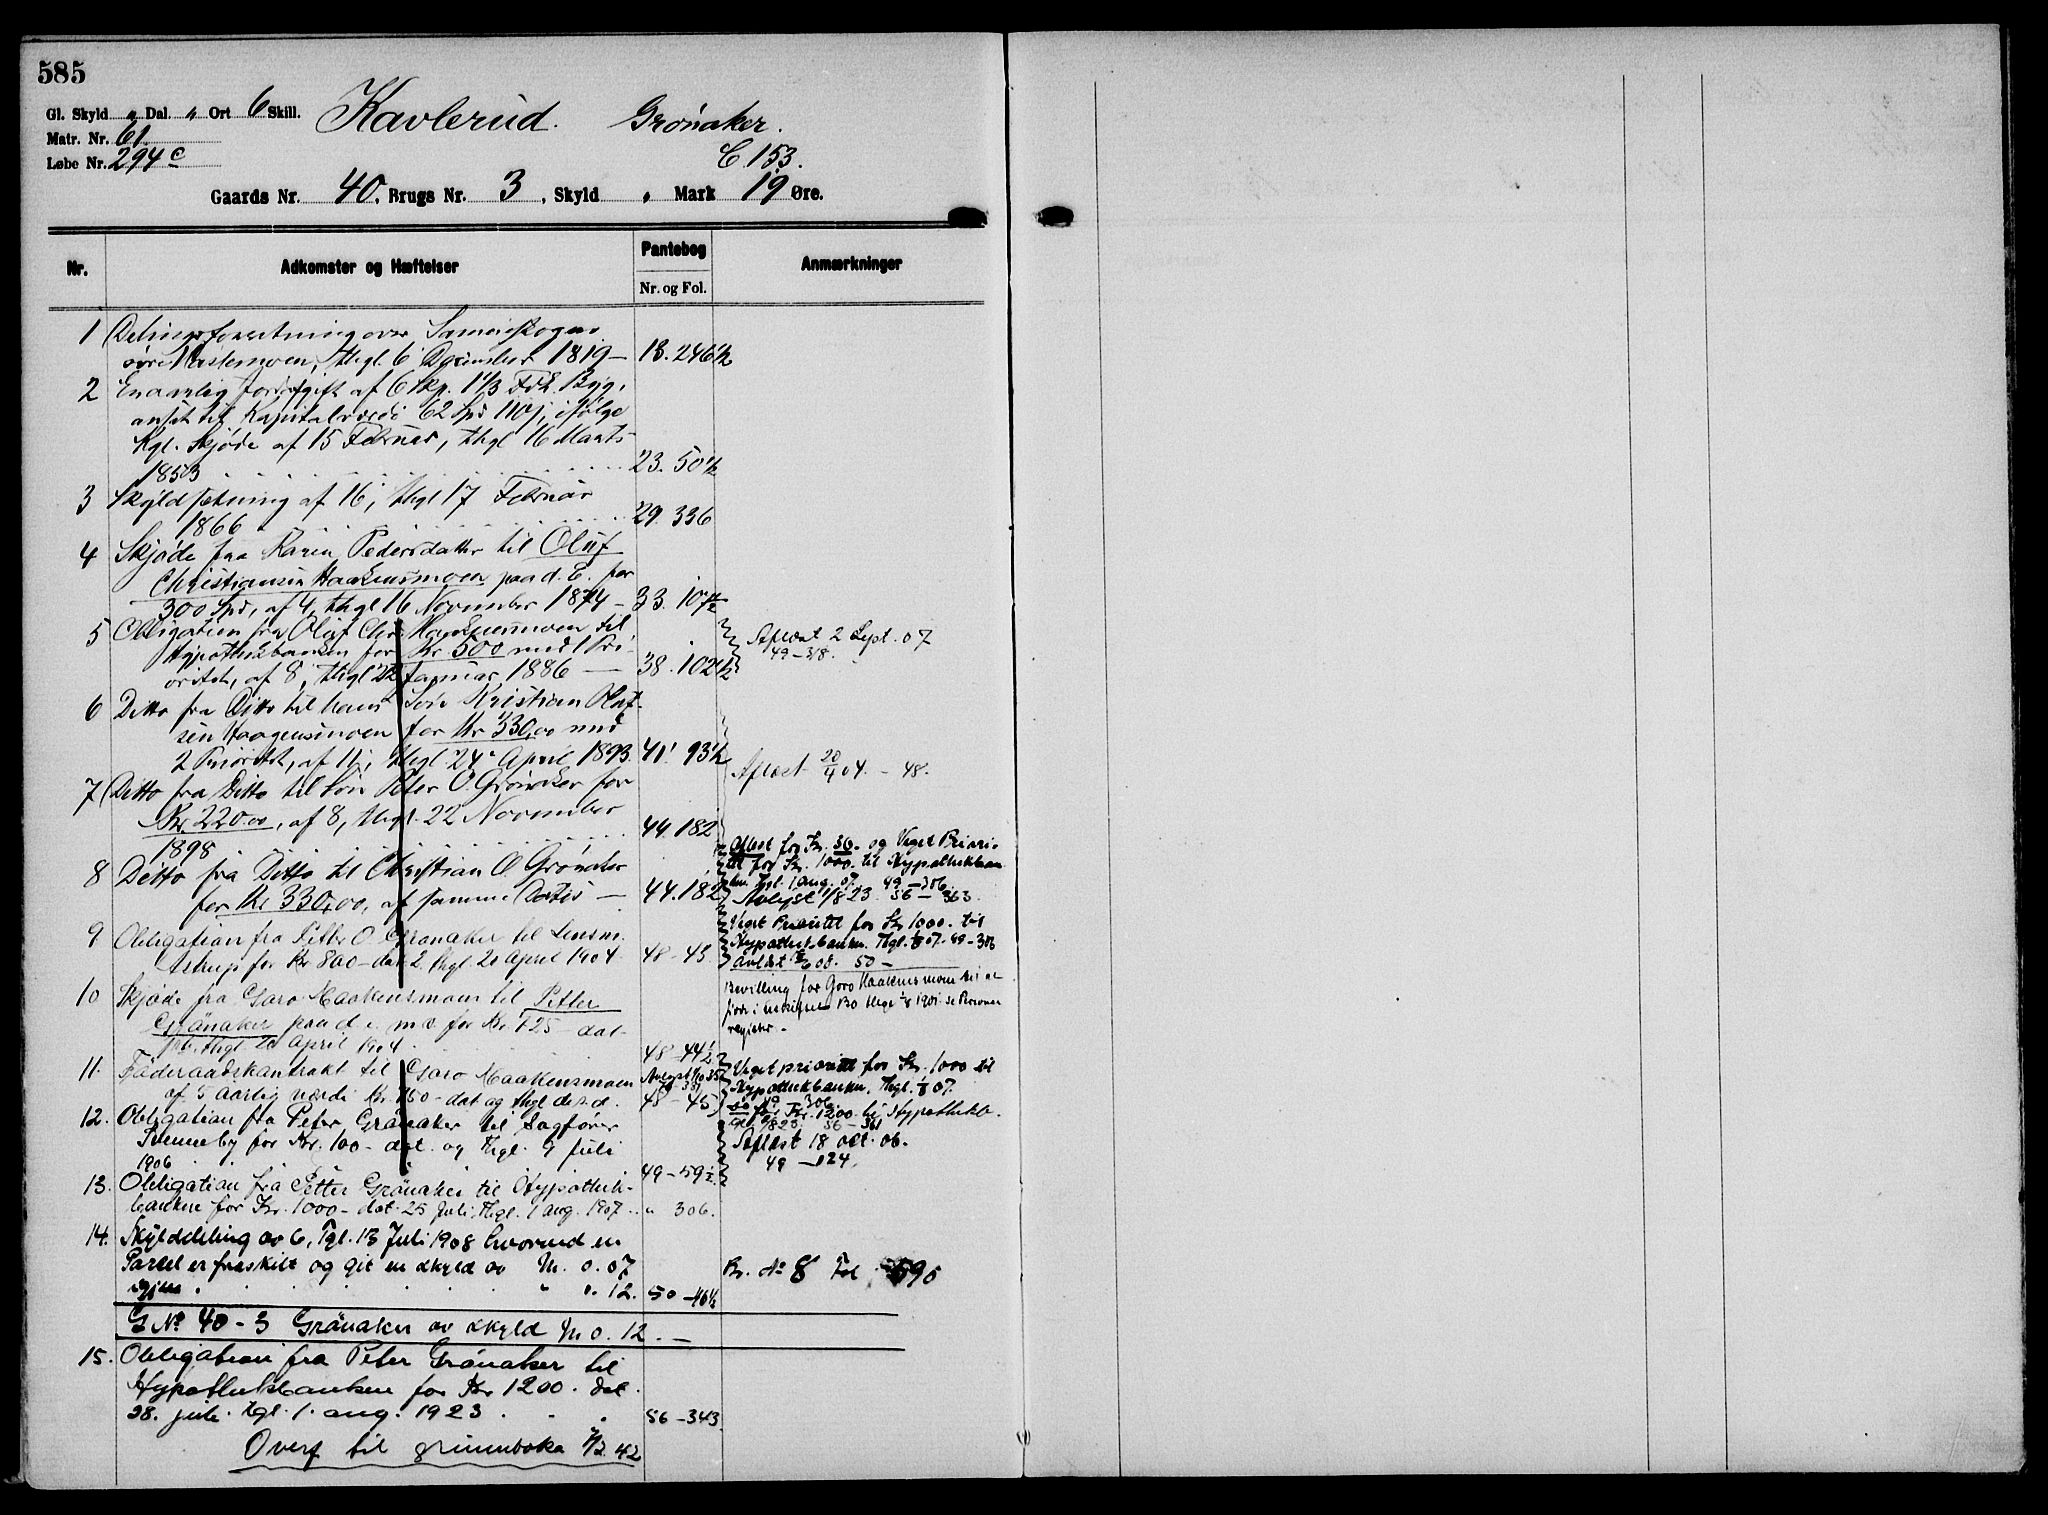 585
Gl. Skyld „ Dal. „ Ort 6 Skill.
Kavlerud. Grønaker.
Matr. Nr. 61.
Løbe Nr. 294 c
C. 153.
Gaards Nr. 40, Brugs Nr. 3, Skyld „ Mark 19 Øre.
Nr. Adkomster og Hæftelser Pantebog Nr. og Fol. Anmærkninger
1 Delingsforretning over Sameieskogen
øvre Mastemoen, thgl. 6 December 1819 — 18. 246 1/2
2 En aarlig Jordafgift af 6 Skp. 1 1/3 Fdk. Byg,
ansat til Kapitalværdi 62 Spd 110 ſ, ifølge
Kgl. Skjøde af 15 Februar, thgl 16 Marts
1853 23. 50 1/2
3 Skyldsætning af 16, thgl 17 Februar
1866 29. 336
4 Skjøde fra Karen Pedersdatter til Oluf
Christiansen Haakensmoen paa d. E. for
300 Spd, af 4, thgl 16 November 1874 — 33. 107 1/2
5 Obligation fra Oluf Chr. Haakensmoen til
Hypothekbanken for Kr 500 med 1 Pri-
oritet, af 8, thgl 22 Januar 1886 — 38. 102 1/2
Aflæst 2 Sept. 07
49 – 318.
6 Ditto fra Ditto til hans Søn Kristian Oluf-
sen Haagensmoen for Kr 330,00 med
2 Prioritet, af 11, thgl 24 April 1893. 41. 93 1/2
Aflæst 20/4 04. – 48.
7 Ditto fra Ditto til Søn Peter O. Grønaker for
Kr. 220.00, af 8, thgl. 22 November
1898 44. 182
Aflæst for Kr. 36. og Veget Priori-
tet for Kr. 1000. til Hypothekban-
ken. Thgl. 1 aug. 07. 49 – 306.
8 Ditto fra Ditto til Christian O. Grønaker
for Kr 330,00, af samme Datis — 44. 182
Avlyst 1/8 23. 56 – 363.
Veget Prioritet for Kr 1000. til
Hypothekbanken. Thgl. 1/8 07. 49 – 306
9 Obligation fra Petter O. Grønaker til Lensm.
Astrup for Kr 800 – dat 2. thgl. 20 April 1904. 48 – 45
Avlæst 08. 50 –
10 Skjøde fra Goro Haakensmoen til Petter
Grønaker paa d. e. m v. for Kr. 725 – dat
thgl. 20 April 1904. 48 – 44 1/2
Bevilling for Goro Haakensmoen til at
sidde i uskiftet Bo thgl 1901. se Personer
register.
11. Føderaadskontrakt til Goro Haakensmoen
af 5 aarlig værdi Kr. 150 – dat og thgl des. d. 48 – 45
Veget prioritet for Kr. 1000 til
Hypothekbanken. Thgl. 1/8 07.
49 306
do for Kr. 1200 til Hypothekb.
12. Obligation fra Peter Grønaker til Sagfører
Svenneby for Kr. 100 – dat. og thgl. 9 Juli
1906 49 – 59 1/2
Aflæst 18 oct. 06.
49 – 124.
13. Obligation fra Petter Grønaker til Hypothek-
banken for Kr. 1000 – dat. 25 Juli, thgl. 1 aug. 1907 „ 306.
14. Skylddeling av 6, Tgl. 13 Juli 1908 hvorved en
Parcel er fraskilt og git en skyld av M. 0. 07
igjen „ 0. 12. 50 – 46 1/2
Br. No 8 Fol 590
G No 40 – 3 Grønaker av skyld M 0. 12. —
15. Obligation fra Peter Grønaker til
Hypothekbanken for Kr 1200. dat.
28. juli. tgl. 1. aug. 1923 56 – 343
Overf til grunnboka 7/2 42